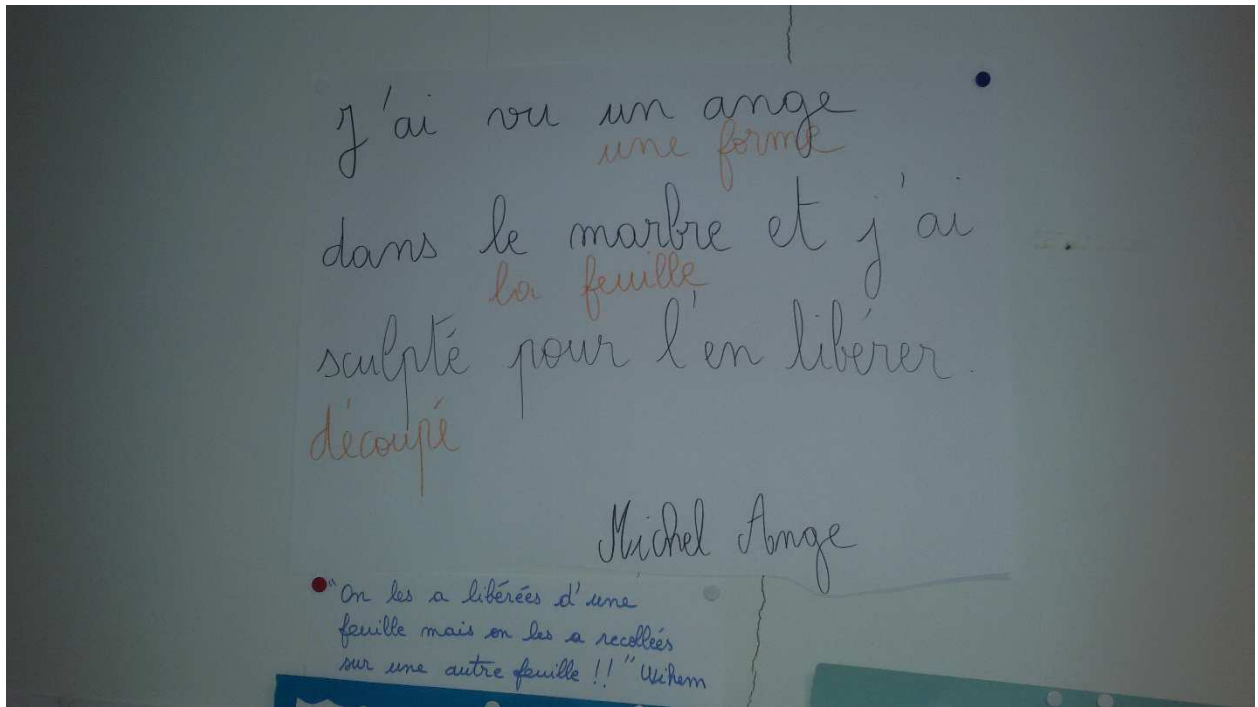 J'ai vu un ange
une forme
dans le marbre et j'ai
la feuille
sculpté pour l'en libérer.
découpé
Michel Ange
"On les a libérées d'une
feuille mais on les a recollées
sur une autre feuille !!" Wihem